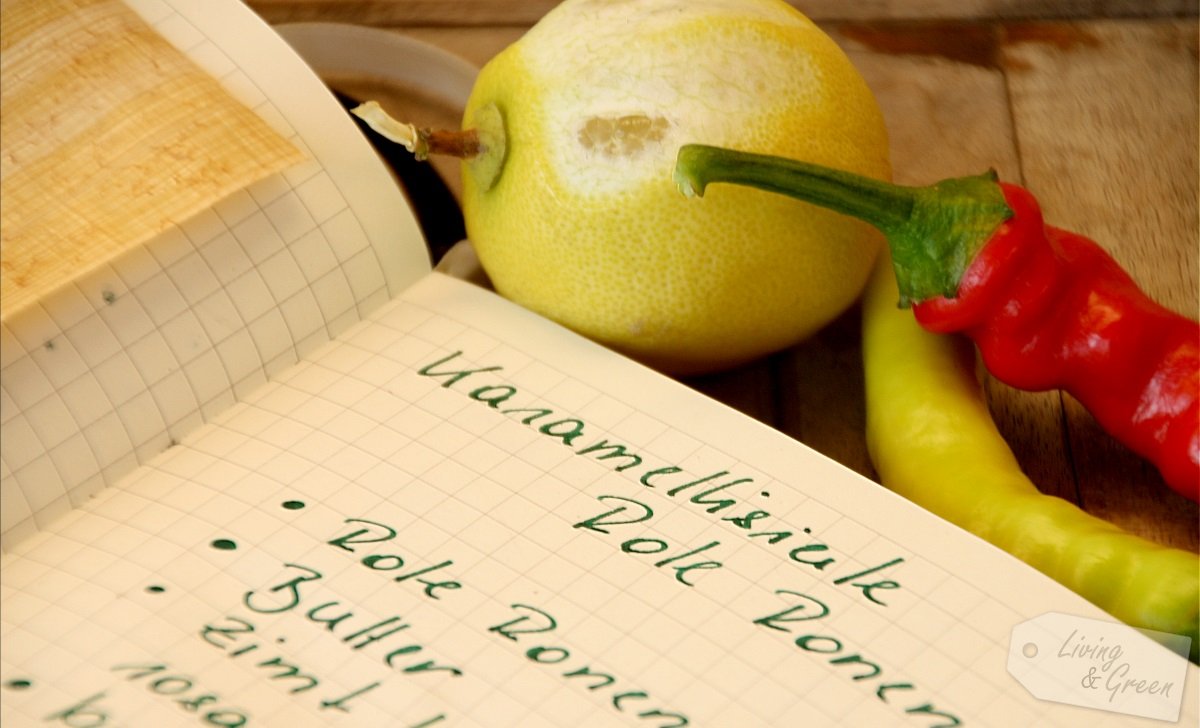 Karamellisierte
Rote Ronen
• Rote Ronen
• Butter
• Zimt
rosa
•
Living
& Green